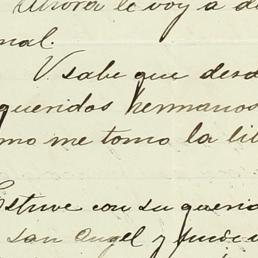 le voy a d
nal.
V. sabe que desd
queridos hermanos
mo me tomo la li
Estuve con su querid
San Angel y pude